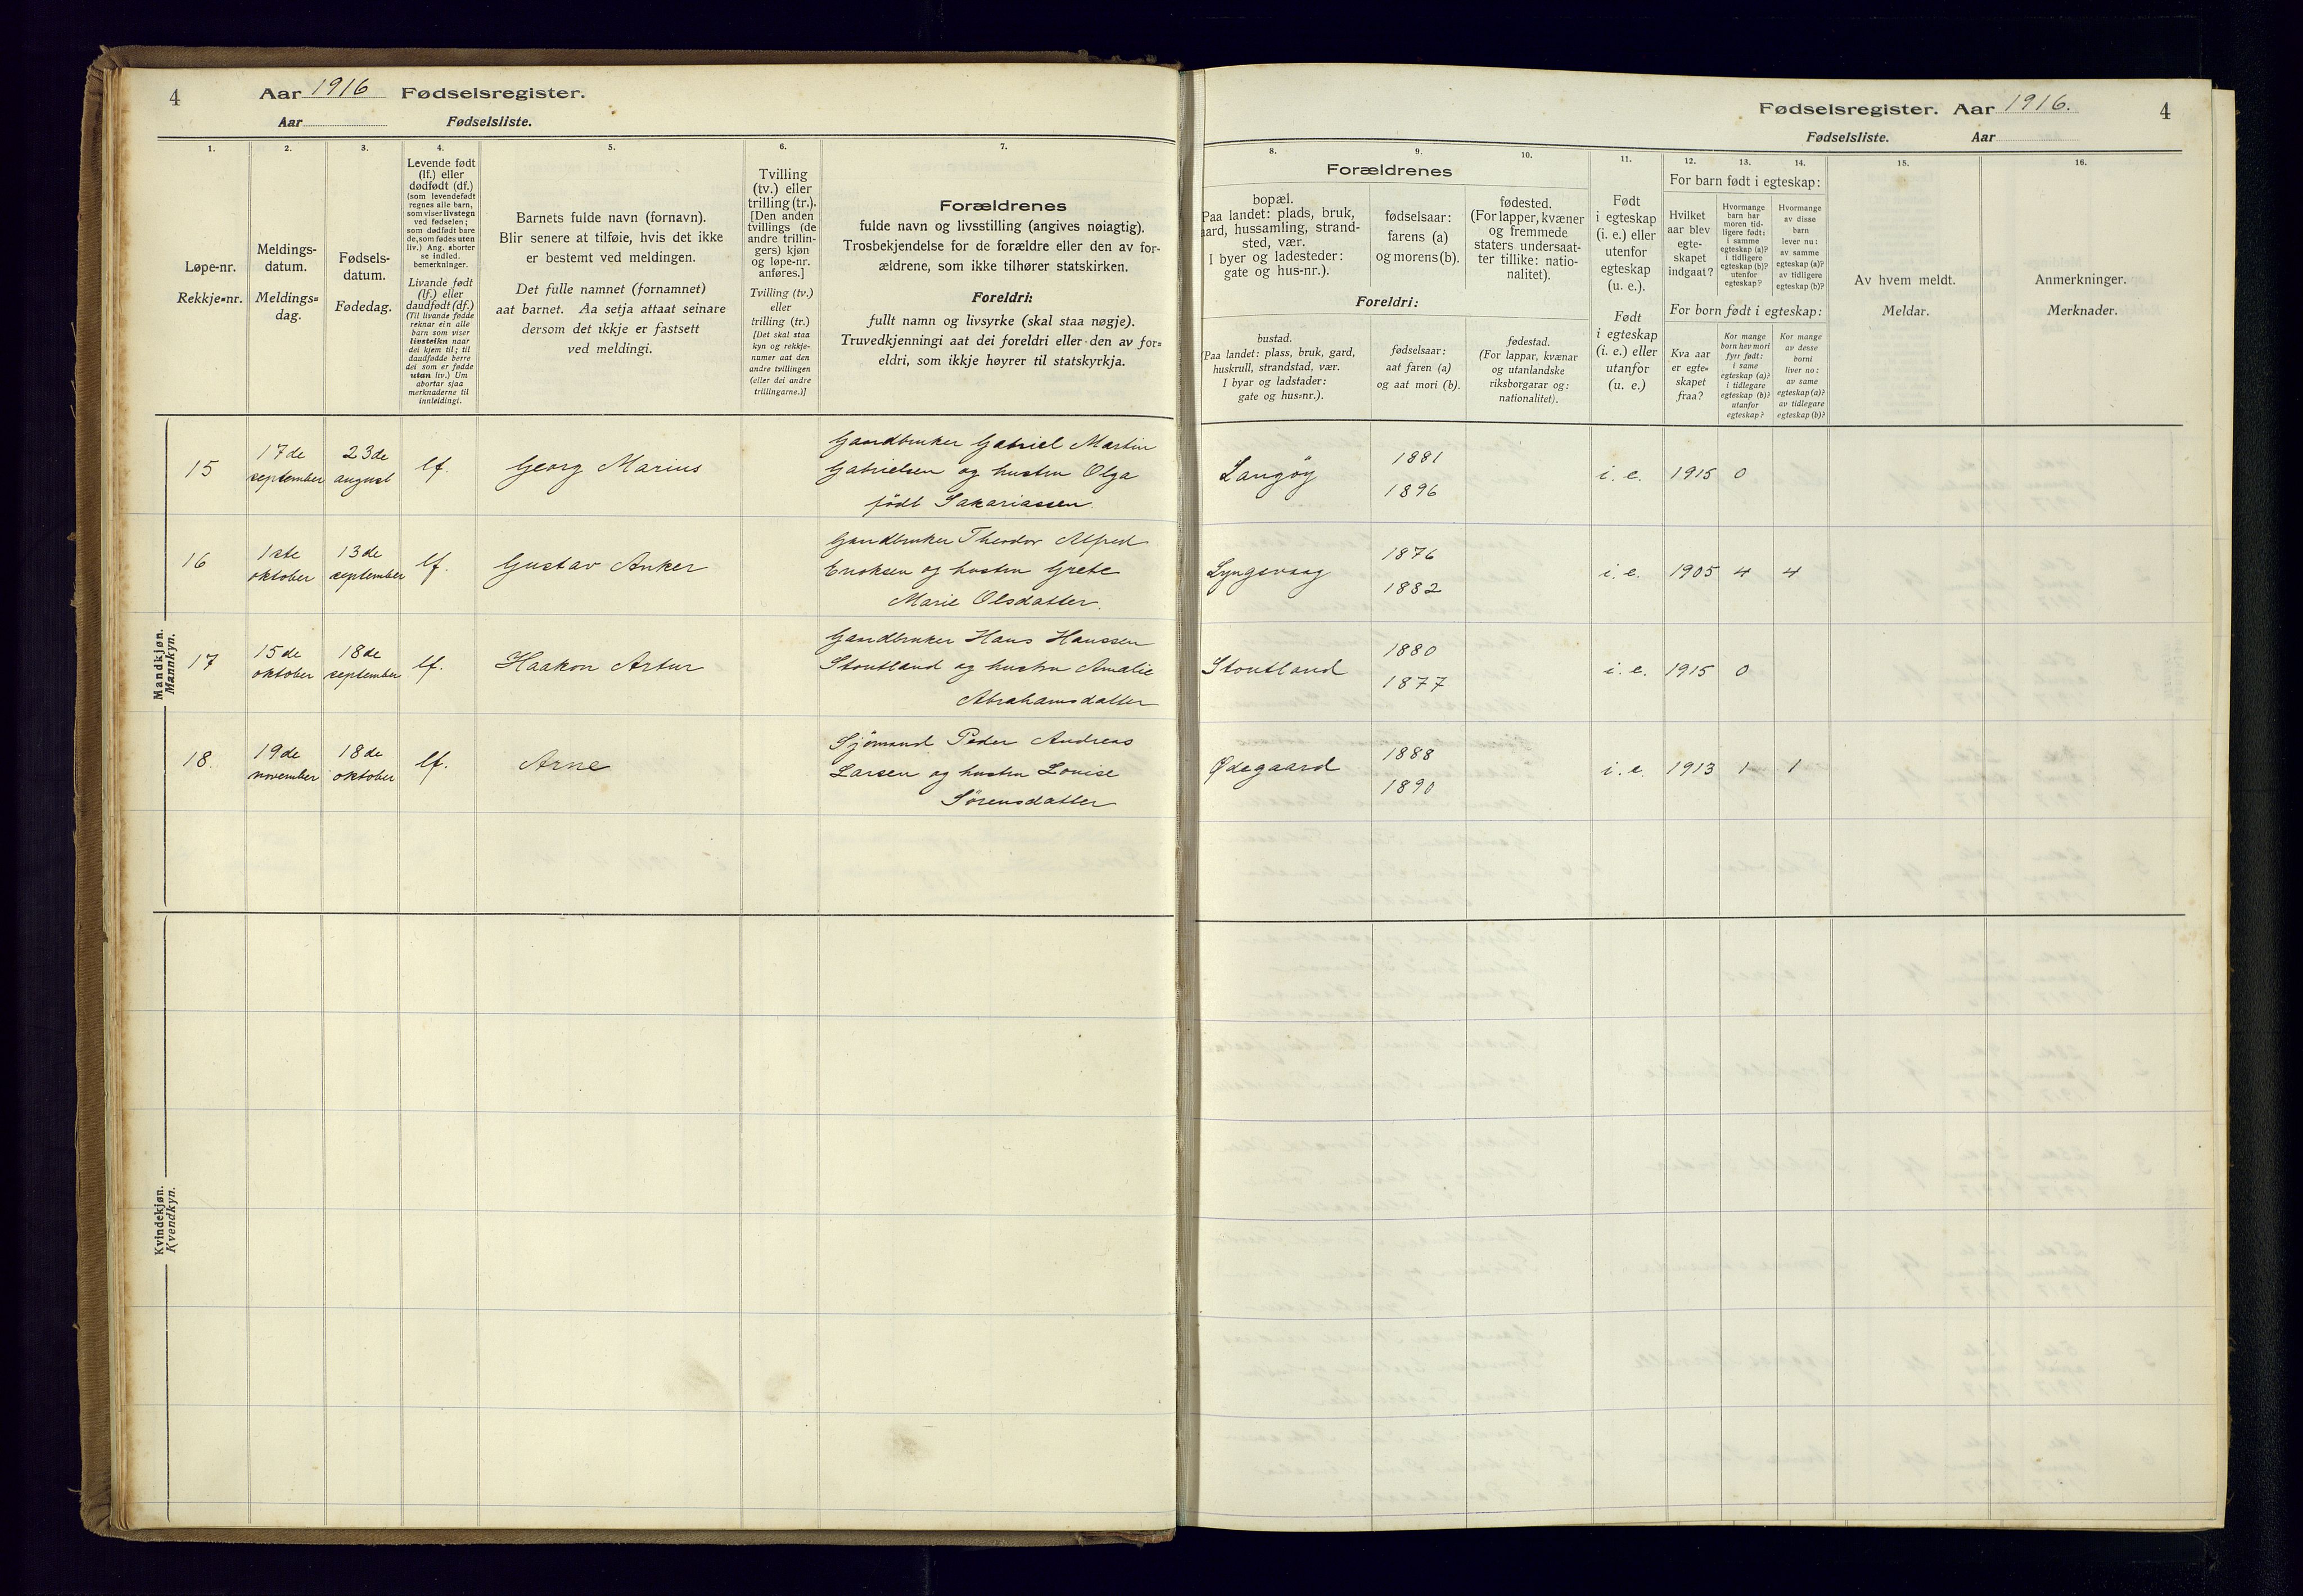 4
Aar 1916 Fødselsregister.
Aar Fødselsliste.
1.
2.
3.
4.
5.
6.
7.
Løpe-nr.
Rekkje=nr.
Meldings-
datum.
Meldings=
dag.
Fødsels-
datum.
Fødedag.
Levende født
(lf.) eller
dødfødt (df.)
(som levendefødt
regnes alle barn,
som viser livstegn
ved fødselen;
som dødfødt bare
de, som fødes uten
liv.) Ang. aborter
se indled.
bemerkninger.
Livande født
(lf.) eller
daudfødt (df.)
(Til livande fødde
reknar ein alle
barn som viser
livsteikn naar
dei kjem til; til
daudfødde berre
dei som er fødde
utan liv.) Um
abortar sjaa
merknaderne til
innleidingi.
Barnets fulde navn (fornavn).
Blir senere at tilføie, hvis det ikke
er bestemt ved meldingen.
Det fulle namnet (fornamnet)
aat barnet. Aa setja attaat seinare
dersom det ikkje er fastsett
ved meldingi.
Tvilling
(tv.) eller
trilling (tr.).
[Den anden
tvillings (de
andre trillin-
gers) kjøn
og løpe-nr.
anføres.]
Tvilling (tv.)
eller
trilling (tr.)
[Det skal staa
kyn og rekkje-
numer aat den
andre tvillingen
(eller dei andre
trillingarne.)]
Forældrenes
fulde navn og livsstilling (angives nøiagtig).
Trosbekjendelse for de forældre eller den av for-
ældrene, som ikke tilhører statskirken.
Foreldri:
fullt namn og livsyrke (skal staa nøgje).
Truvedkjenningi aat dei foreldri eller den av for=
eldri, som ikkje høyrer til statskyrkja.
Mandkjøn.
Mannkyn.
15
17de
september
23de
august
lf.
Georg Marius
Gaardbruker Gabriel Martin
Gabrielsen og hustru Olga
født Sakariassen.
16
1ste
oktober
13de
september
lf.
Gustav Anker
Gaardbruker Theodor Alfred
Enoksen og hustru Grete
Marie Olsdatter.
17
15de
oktober
18de
september
lf.
Haakon Artur
Gaardbruker Hans Hanssen
Stoutland og hustru Amalie
Abrahamsdatter
18.
19de
november
18de
oktober
lf.
Arne
Sjømand Peder Andreas
Larsen og hustru Louise
Sørensdatter
Kvindekjøn.
Kvendkyn.
Fødselsregister. Aar 1916.
4
Fødselsliste. Aar
8.
9.
10.
11.
12.
13.
14.
15.
16.
Forældrenes
bopæl.
Paa landet: plads, bruk,
aard, hussamling, strand-
sted, vær.
I byer og ladesteder:
gate og hus-nr.).
fødselsaar:
farens (a)
og morens (b).
fødested.
(For lapper, kvæner
og fremmede
staters undersaat-
ter tillike: natio-
nalitet).
Foreldri:
bustad.
(Paa landet: plass, bruk, gard,
huskrull, strandstad, vær.
I byar og ladstader:
gate og hus=nr.).
fødselsaar:
aat faren (a)
og aat mori (b).
fødestad.
(For lappar, kvænar
og utanlandske
riksborgarar og:
nationalitet).
Født
i egteskap
(i. e.) eller
utenfor
egteskap
(u. e.).
Født
i egteskap
(i. e.) eller
utanfor
(u. e.)
For barn født i egteskap:
Hvilket
aar blev
egte-
skapet
indgaat?
Hvormange
barn har
moren tid-
ligere født:
i samme
egteskap (a)?
i tidligere
egteskap (b)?
utenfor
egteskap?
Hvormange
av disse
barn
lever nu:
av samme
egteskap (a)?
av tidligere
egteskap (b)?
For born født i egteskap:
Kva aar
er egte=
skapet
fraa?
Kor mange
born hev mori
fyrr født:
i same
egteskap (a)?
i tidlegare
egteskap (b)?
utanfor
egteskap?
Kor mange
av desse
borni
liver no:
av same
egteskap (a)?
av tidlegare
egteskap (b)?
Av hvem meldt.
Meldar.
Anmerkninger.
Merknader.
Langøy
1881
1896
i. e. 1915 0
Lyngsvaag
1876
1882
i. e. 1905 4 4
Stoutland
1880
1877
i. e. 1915 0
Ødegaard
1888
1890
i. e. 1913 1 1